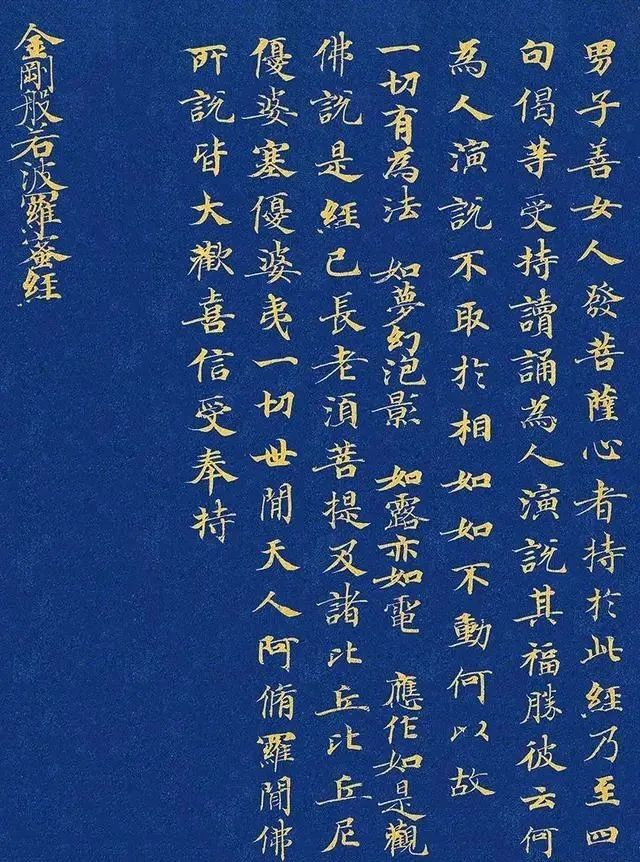 男子善女人發菩薩心者持於此經乃至四
句偈等受持讀誦為人演說其福勝彼云何
為人演說不取於相如如不動何以故
一切有為法 如夢幻泡影 如露亦如電 應作如是觀
佛說是經已長老須菩提及諸比丘比丘尼
優婆塞優婆夷一切世間天人阿脩羅聞佛
所說皆大歡喜信受奉持
金剛般若波羅蜜經